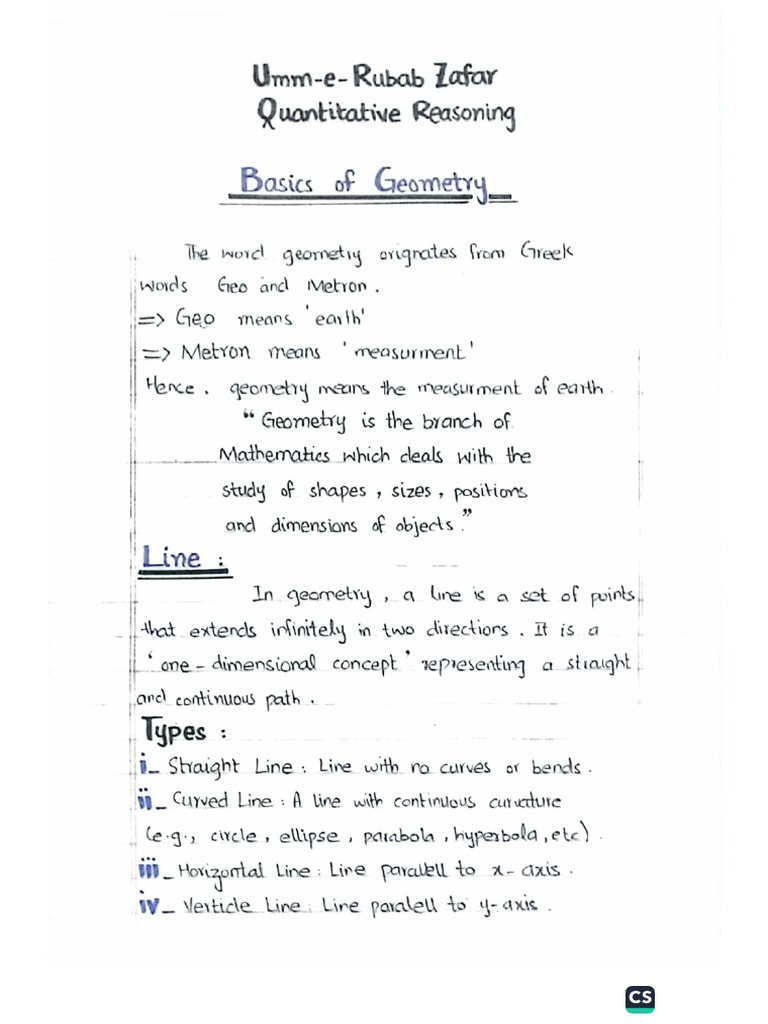 Umm-e-Rubab Zafar
Quantitative Reasoning
Basics of Geometry
The word geometry orignates from Greek
words Geo and Metron.
=> Geo means 'earth'
=> Metron means 'measurment'
Hence, geometry means the measurment of earth.
“Geometry is the branch of
Mathematics which deals with the
study of shapes, sizes, positions
and dimensions of objects.”
Line :
In geometry, a line is a set of points
that extends infinitely in two directions. It is a
'one-dimensional concept' representing a straight
and continuous path.
Types :
i_ Straight Line : Line with no curves or bends.
ii_ Curved Line : A line with continuous curvature
(e.g., circle, ellipse, parabola, hyperbola, etc).
iii_ Horizontal Line : Line parallell to x-axis.
iv_ Verticle Line : Line paralell to y-axis.
CS